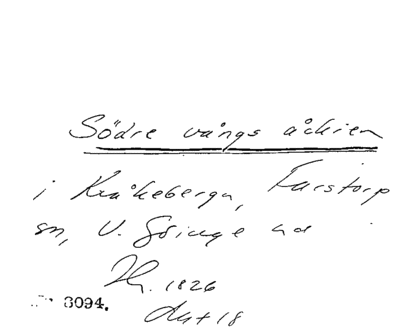 Södre vångs åckren
i Kråkeberga, Farstorp
sn, V. Göinge hd
1826
3094. Akt 18